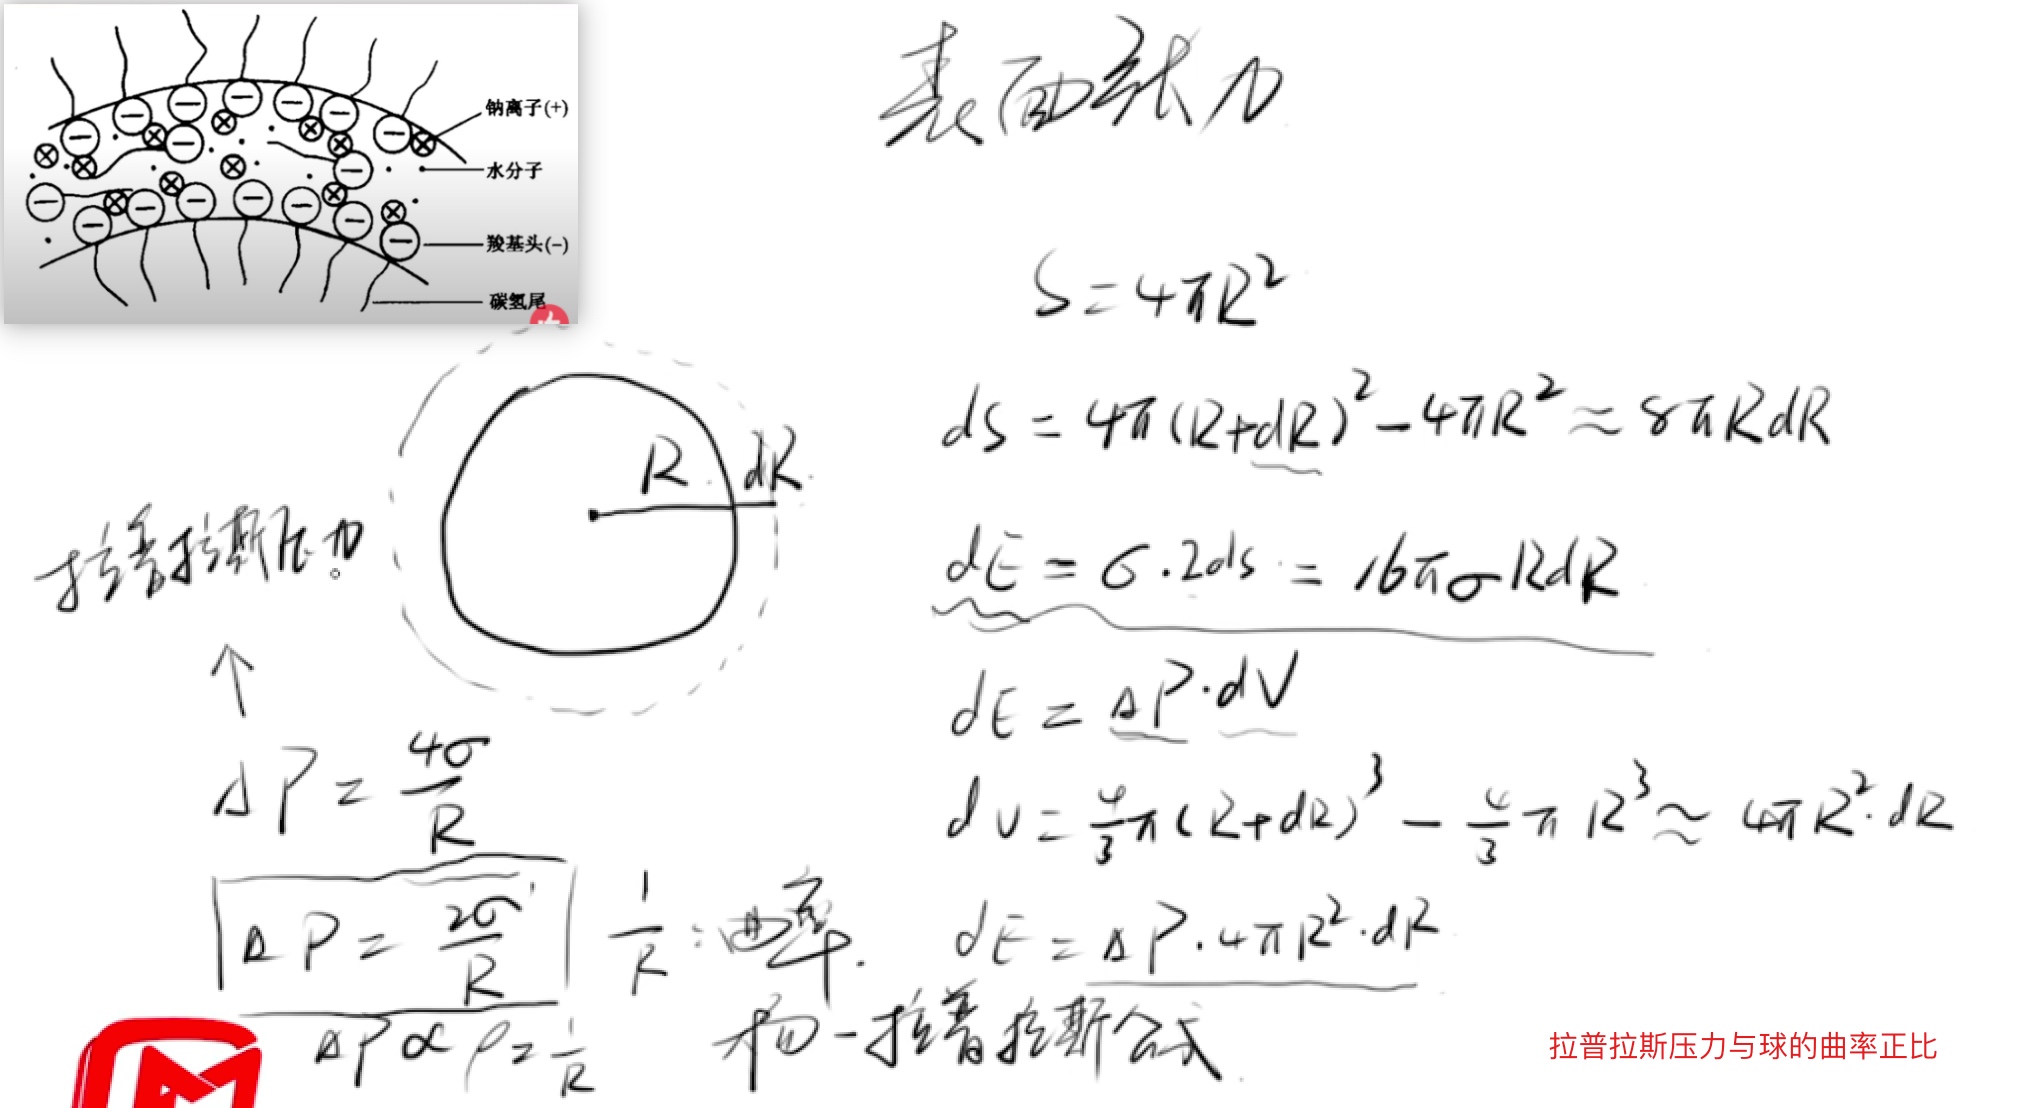 表面张力
钠离子(+)
水分子
羧基头(−)
碳氢尾
S = 4πR²
dS = 4π(R+dR)² − 4πR² ≈ 8πRdR
R dR
拉普拉斯压力
dE = σ·2ds = 16πσRdR
dE = ΔP·dV
dV = 4/3 π(R+dR)³ − 4/3 π R³ ≈ 4πR²·dR
dE = ΔP·4πR²·dR
↑
ΔP = 4σ/R
ΔP = 2σ/R
1/R : 曲率.
ΔP ∝ ρ = 1/R
杨-拉普拉斯公式
拉普拉斯压力与球的曲率正比